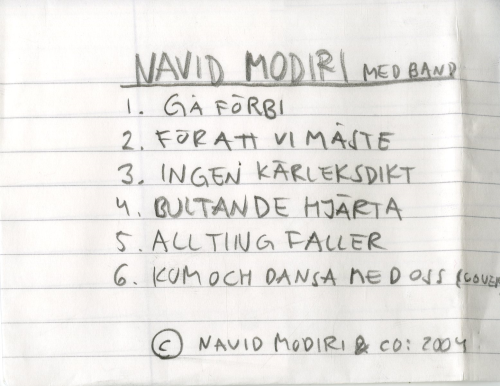 NAVID MODIRI MED BAND
1. GÅ FÖRBI
2. FÖR ATT VI MÅSTE
3. INGEN KÄRLEKSDIKT
4. BULTANDE HJÄRTA
5. ALLTING FALLER
6. KOM OCH DANSA MED OSS (COVER
© NAVID MODIRI & CO: 2004